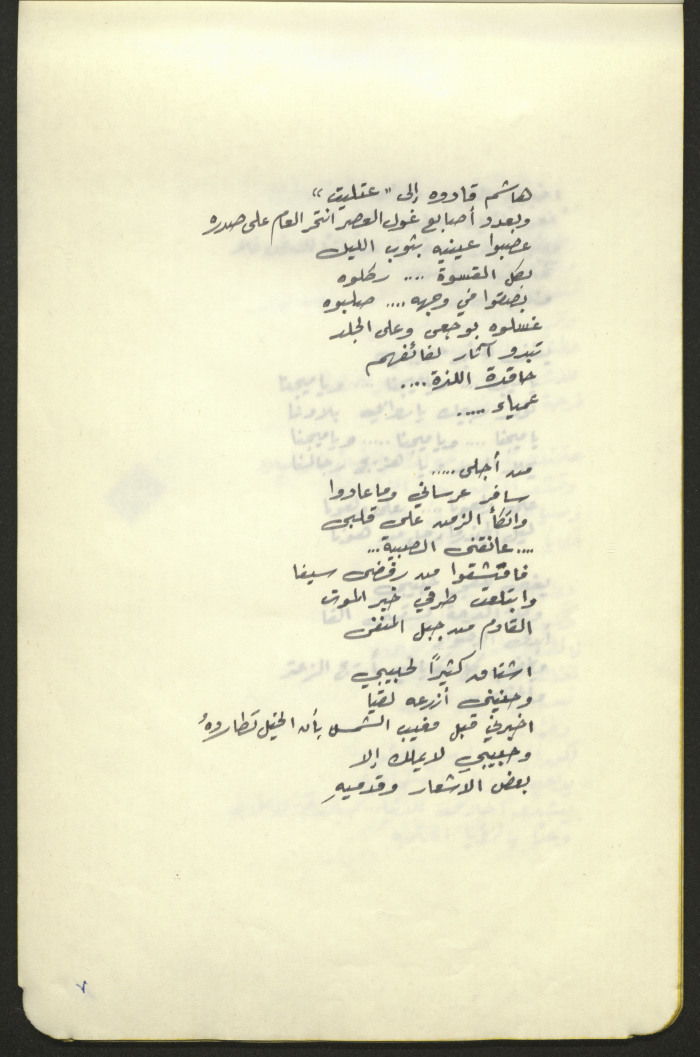 هاشم قادوه إلى "عتليت"
وبعدو أصابع غول العصر انتحر العام على صدره
عصبوا عينيه بثوب الليل
بكل القسوة .... ركلوه
بصقوا في وجهه .... صلبوه
غسلوه بوجعي وعلى الجلد
تبدو آثار لفائفهم
حاقدة اللذة ....
عمياء .....
من أجلي .....
سافر عرساني وما عادوا
واتكأ الزمن على قلبي
.... عانقني الصبية ...
فامتشقوا من رفضي سيفا
وابتلعت طرقي خبر الموت
القادم من جبل المنفى
اشتاق كثيراً لحبيبي
وحنيني أزرعه لقيا
اخبرني قبل مغيب الشمس بأن الخيل تطاردهُ
وحبيبي لا يملك إلا
بعض الاشعار وقدميهِ
٧